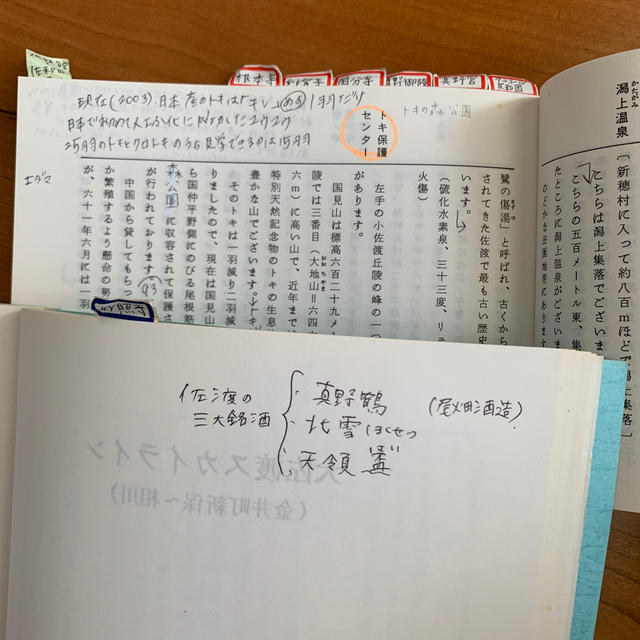 根本寺
妙宣寺
国分寺
真野宮
現在(2003)日本産のトキは「キン」(めす)1羽だけ
日本で初めて人工ふ化に成功したユウユウ
25羽のトキとクロトキのうち見学できるのは15羽
トキの森公園
エダマ
トキ保護
センター
潟上温泉
かたがみ
「新穂村に入って約八百mほどで潟上集落」
こちらは潟上集落でございま
こちらの五百メートル東、集
たところに潟上温泉がございま
のどかな田園地帯にあります
鷺の傷湯」と呼ばれ、古くから
されてきた佐渡で最も古い歴史
います。
(硫化水素泉、三十三度、リュ
火傷)
左手の小佐渡丘陵の峰の一つ
国見山は標高六百二十九メー
陵では三番目(大地山=六四
六m)に高い山で、近年まで
特別天然記念物のトキの生息
豊かな山でございます。トキ
そのトキは一羽減り二羽減
りましたので、現在は国見山
ら国仲平野側にのびる尾根筋
森公園
に収容されて保護さ
が行われております。
中国から貸してもらっ
か繁殖するよう懸命の努
が、六十一年六月には一羽
佐渡の
三大銘酒
真野鶴
(尾畑酒造)
北雪 ほくせつ
天領盃
大佐渡スカイライン
(金井町新保~相川)